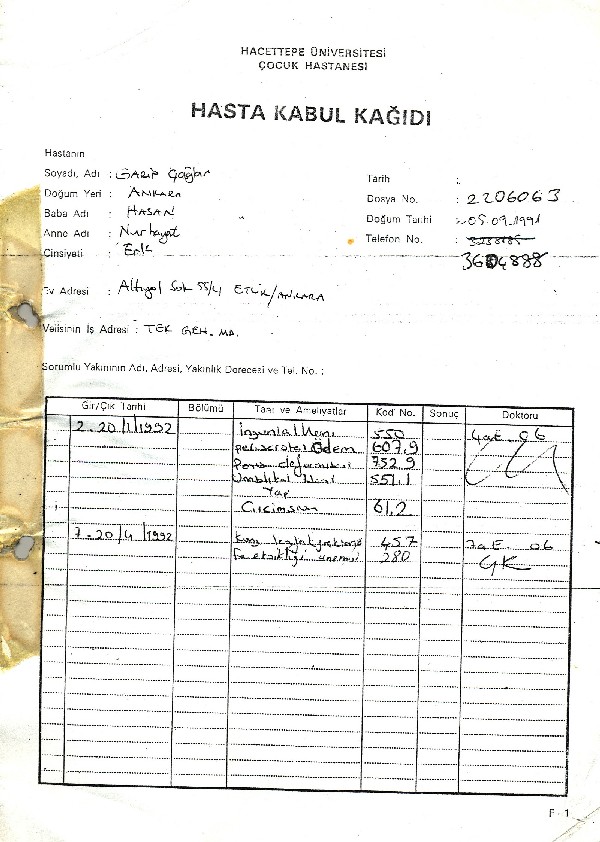 HACETTEPE ÜNİVERSİTESİ
ÇOCUK HASTANESİ
HASTA KABUL KAĞIDI
Hastanın
Soyadı, Adı : GARİP Çağlar
Doğum Yeri : ANKARA
Baba Adı : HASAN
Anne Adı : Nurhayat
Cinsiyeti : Erk
Tarih :
Dosya No. : 2206063
Doğum Tarihi : 05.09.1991
Telefon No. :
3604888
Ev Adresi : Altıyol Sok 55/4 ETLİK/ANKARA
Velisinin İş Adresi : TEK GEN. MA.
Sorumlu Yakınının Adı, Adresi, Yakınlık Derecesi ve Tel. No. :
Gir/Çık Tarihi Bölümü Taat ve Ameliyatlar Kod No. Sonuç Doktoru
2-20/1/1992 İnguinal Herni 550 4aE 06
Ödem 607.9
Penis 752.9
Umblikal Herni 551.1
61.2
7-20/4/1992 457 7aE 06
Fe eksikliği anemisi 280 GK
F - 1